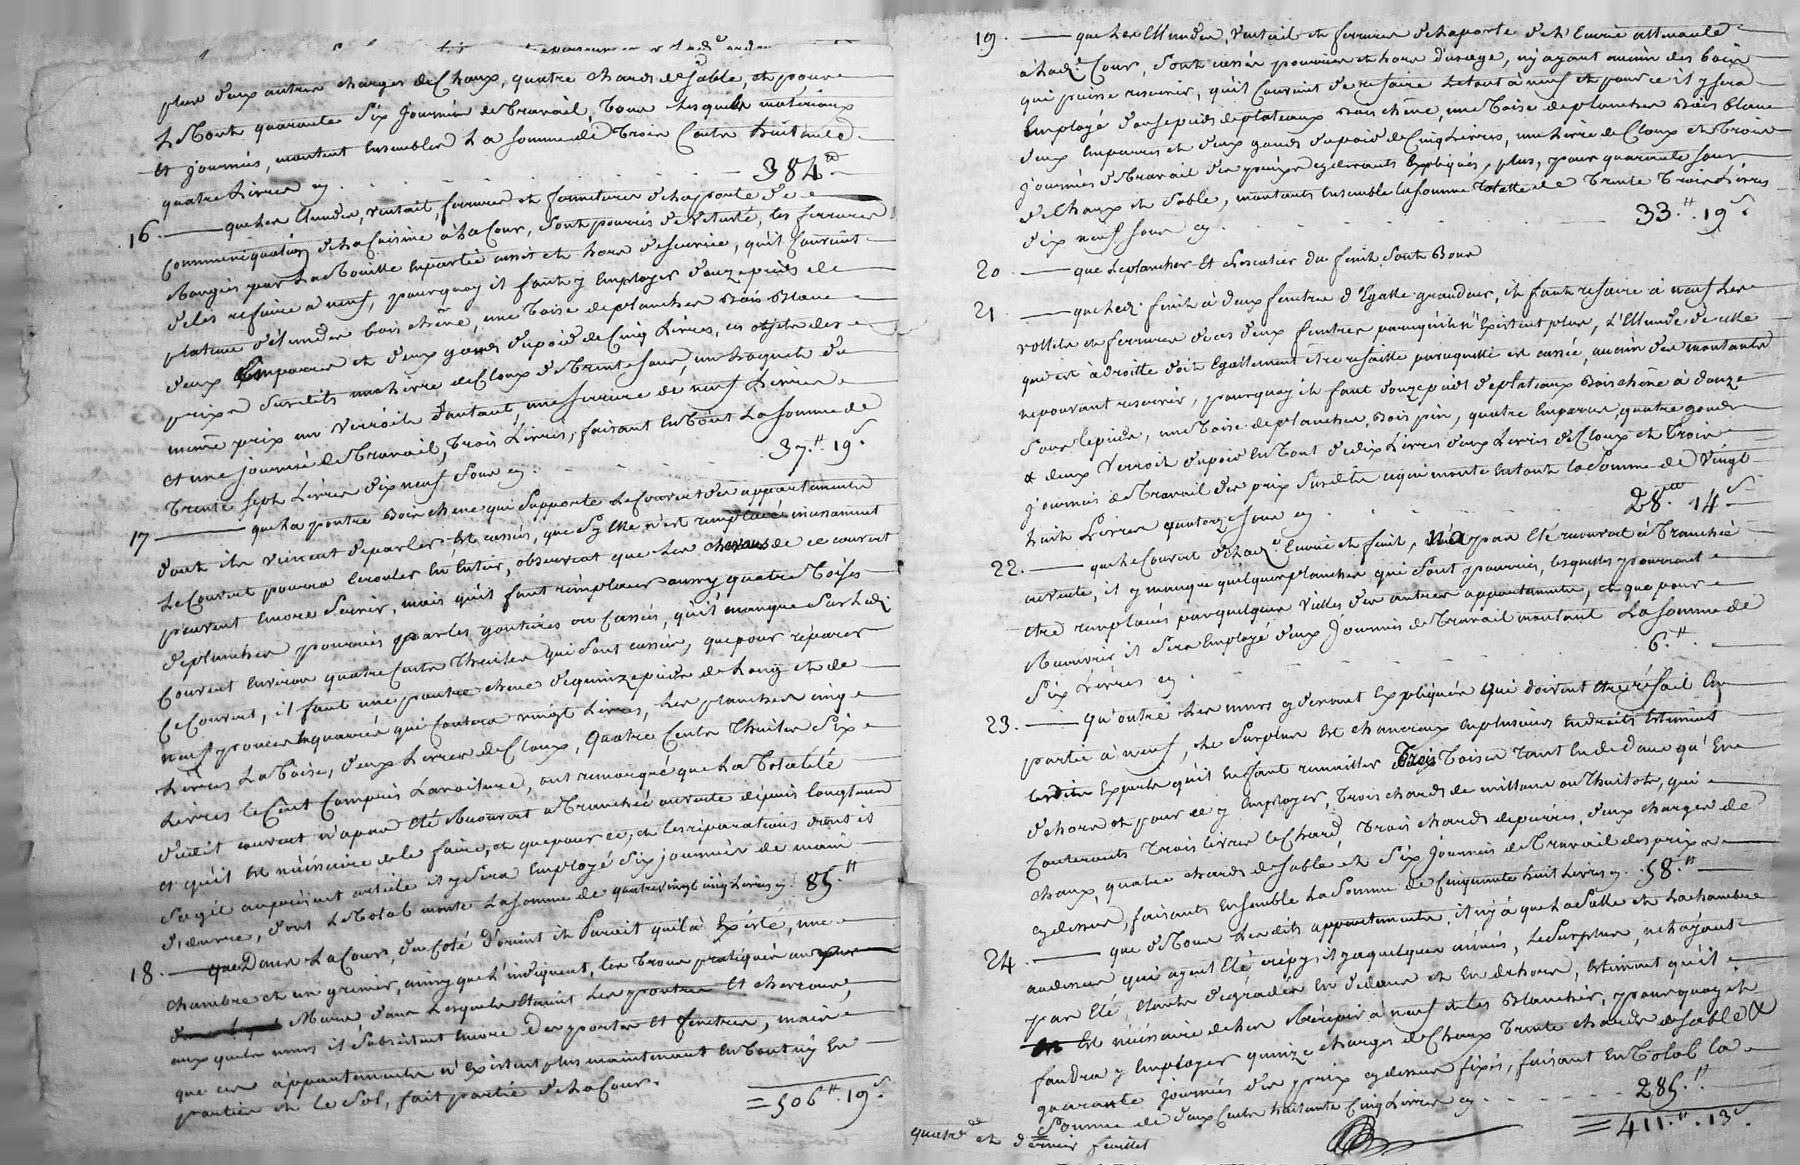 plus deux autres charges de Chaux, quatre chards de Sable, et pour
le Tout quarante Six journées de Travail, Tous lesquels matériaux
et journées, montent Ensembles La somme de Trois Cents huitante
quatre Livres cy. 384.#
16. que les Elandes, ventail, ferrures et fermetures de la porte de
Communiquation de la Cuisine à la Cour, sont pourris de Vétusté, les ferrures
Rongées par La Rouille En partie usées et hors de service, qu'il Convient
de les refaire à neuf, pourquoy il faut y Employer douze pieds de
plateau d'Elandes bois chêne, une Toise de plancher Bois Blanc
deux Empares et deux gonds du poid de Cinq Livres, ces objets des
prix Susdits une Livre de Cloux de Trente Sous, un Loquet du
même prix un Verroil d'autant, une serrure de neuf Livres
et une journée de Travail, Trois Livres, faisant En Tout La somme de
Trente Sept Livres dix neuf Sous cy. 37.# 19.s
17. que La poutre Bois chêne qui Supporte le Couvert des appartements
dont ils viennent de parler est cassée, que Sy Elle n'est remplacée incessament
Le Couvert pourra Ecrouler En Entier, observent que les chevrons de ce couvert
peuvent Encore Servir, mais qu'il faut remplacer aussy quatre Toises
de plancher pourries par les goutières ou Cassées, qu'il manque Sur Led.
Couvert Environ quatre Cents Thuiles qui sont cassées, que pour réparer
Ce Couvert, il faut une poutre chêne de quinze pieds de Long et de
neuf pouces En quarré qui Coutera vingt Livres, les planches cinq
Livres La Toise, deux Livres de Cloux, Quatre Cents Thuiles Six
Livres le Cent Compris La voiture, ont remarqué que La Totalité
dudit couvert n'a pas Eté Recouvert à Tranchée ouverte depuis longtems
et qu'il est nécessaire de le faire, et que pour ce, et les réparations dont il
s'agit au présent article il y sera Employé Six journées de main
d'œuvre, dont Le Total monte La somme de quatre vingt cinq Livres cy. 85.#
18. que Dans La Cour, du Coté d'orient il Paroit qu'il à Existé, une
chambre et un grenier, ainsy que L'indiquent, les Trous pratiqués aux
Murs dans Lesquels Etaient les poutres Et chevrons,
aux quels murs il Subsistent Encore des portes Et fenetres, mais
que ces appartements n'Existent plus maintenant En tout ny En
partie et le Sol, fait partie de la Cour.
= 506.# 19.s
19. que les Elandes, Ventail et ferrures de la porte de L'Ecurie attenante
à lad. Cour, Sont usées pourries et hors d'usage, n'y ayant aucun des bois
qui puisse reservir, qu'il Convient de refaire Le tout à neuf et pour ce il y sera
Employé douze pieds de plateaux Bois chêne, une Toise de plancher Bois blanc
deux Empares et deux gonds du poid de Cinq Livres, une Livre de Cloux et Trois
journées de Travail des prix cy devants Expliqués, plus, pour quarante sous
de Chaux et Sable, montants Ensemble la somme Totalle de Trente Trois Livres
dix neuf Sous cy. 33.# 19.s
20. que Le plancher Et L'escalier du fenil Sont Bons
21. que led. fenil à deux fenetres d'Egalle grandeur, il faut refaire à neuf les
vollets et ferrures de ces deux fenetres parcequ'ils n'Existent plus, L'Elande de celle
qui est à droitte doit Egallement être refaitte parcequ'elle est cassée, aucun des montants
ne pouvant reservir, pourquoy il faut douze pieds de plateaux Bois chêne à douze
Sous le pied, une Toise de plancher Bois pin, quatre Empares, quatre gonds
& deux Verroils du poid En Tout de dix Livres deux Livres de Cloux et Trois
journées de Travail des prix Susdits ce qui monte En tout la Somme de Vingt
huit Livres quatorze Sous cy. 28.# 14.s
22. que le Couvert de lad. Ecurie et fenil, n'a pas Eté recouvert à Tranchée
ouverte, il y manque quelques planches qui sont pourries, lesquelles pourront
être remplacées par quelques vieilles des autres appartements, et que pour
Recouvrir il Sera Employé deux Journées de Travail montant La somme de
Six Livres cy. 6.#
23. Qu'outre les murs cy devant Expliqués qui doivent être refait En
partie à neuf, le Surplus est chancreux En plusieurs Endroits Estiment
lesdits Experts qu'il En faut remailler Trois Toises Tant En dedans qu'En
dehors et pour ce y Employer, Trois chards de mittaux ou Thuilots, qui
Couteront Trois livres le Chard, Trois chards de pierres, deux charges de
chaux, quatre chards de Sable et Six journées de Travail des prix
cy dessus, faisants Ensemble La Somme de Cinquante huit Livres cy. 58.#
24. que de Tous Les dits appartements, il n'y à que La Salle et La chambre
au dessus qui ayent Eté crépys il y a quelques années, Le Surplus, ne l'ayant
pas Eté, Etants dégradés En dedans et En dehors, Estiment qu'il
Est nécessaire de les Récrépir à neuf et les Blanchir, pourquoy il
faudra y Employer quinze charges de Chaux Trente chards de sable &
quarante journées des prix cy dessus fixés, faisant En Total la
Somme de deux Cents huitante Cinq Livres cy. 285.#
= 411.# 13.s
quatre et dernier feuillet